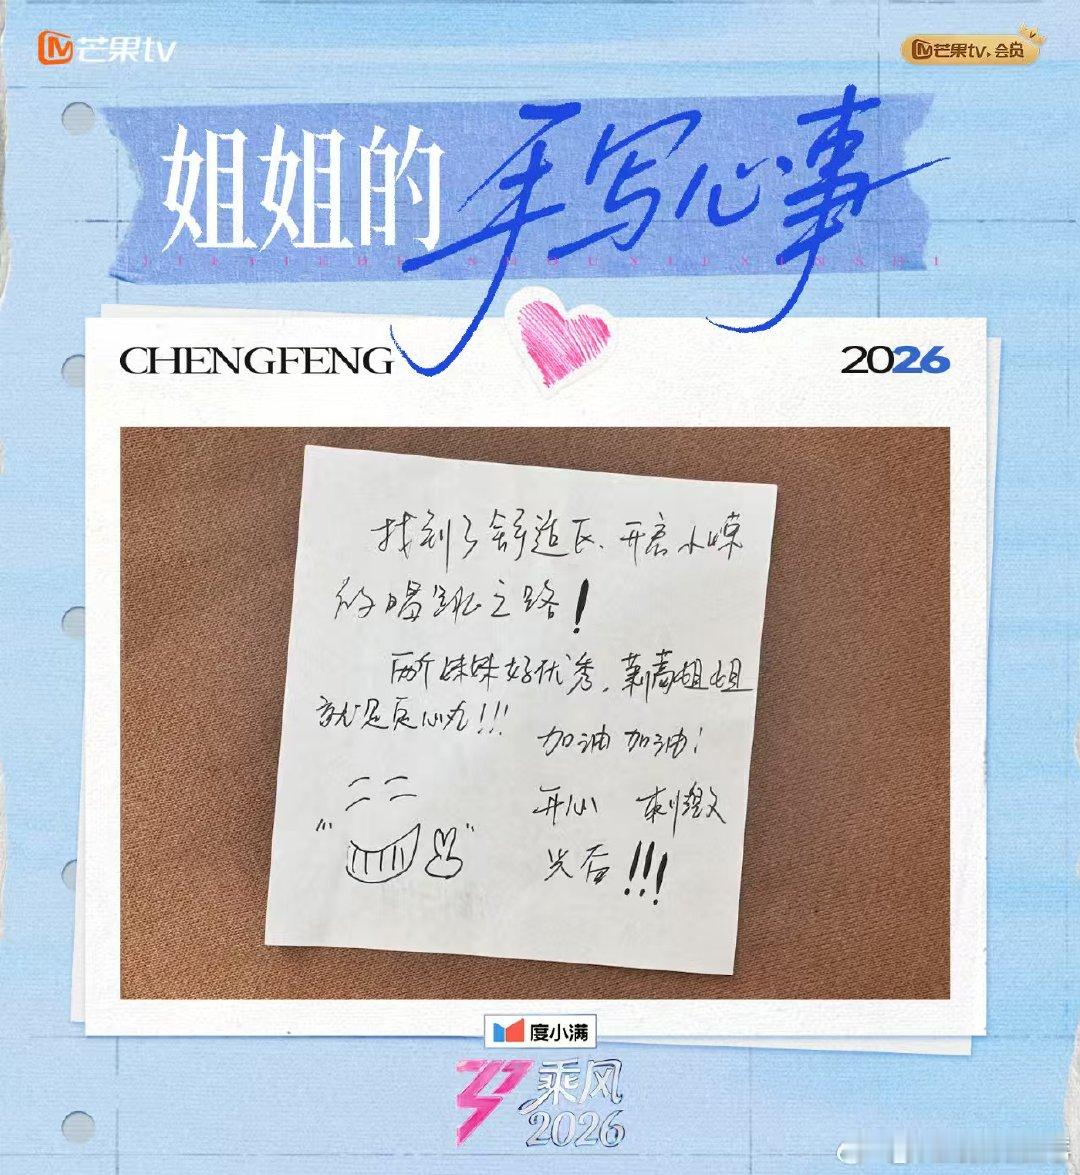 芒果tv
芒果tv会员
姐姐的手写心事
JIEJIEDESHOUXIEXINSHI
CHENGFENG
2026
找到了舒适区、开启小嗓
的喝班之路!
两个妹妹好优秀,萧蔷姐姐
就是定心丸!!!
加油 加油!
开心 刺激
兴奋!!!
度小满
乘风
2026